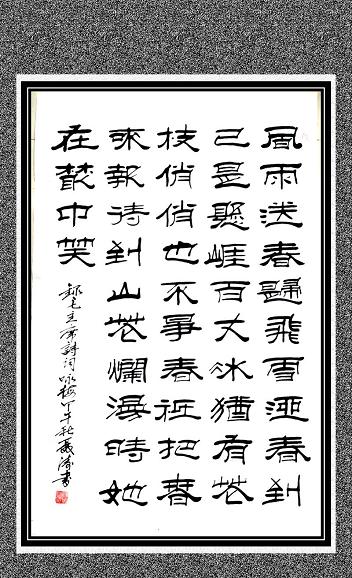 風雨送春歸飛雪迎春到
已是懸崖百丈冰猶有花
枝俏俏也不爭春祇把春
來報待到山花爛漫時她
在叢中笑
錄毛主席詩詞咏梅 秋 書